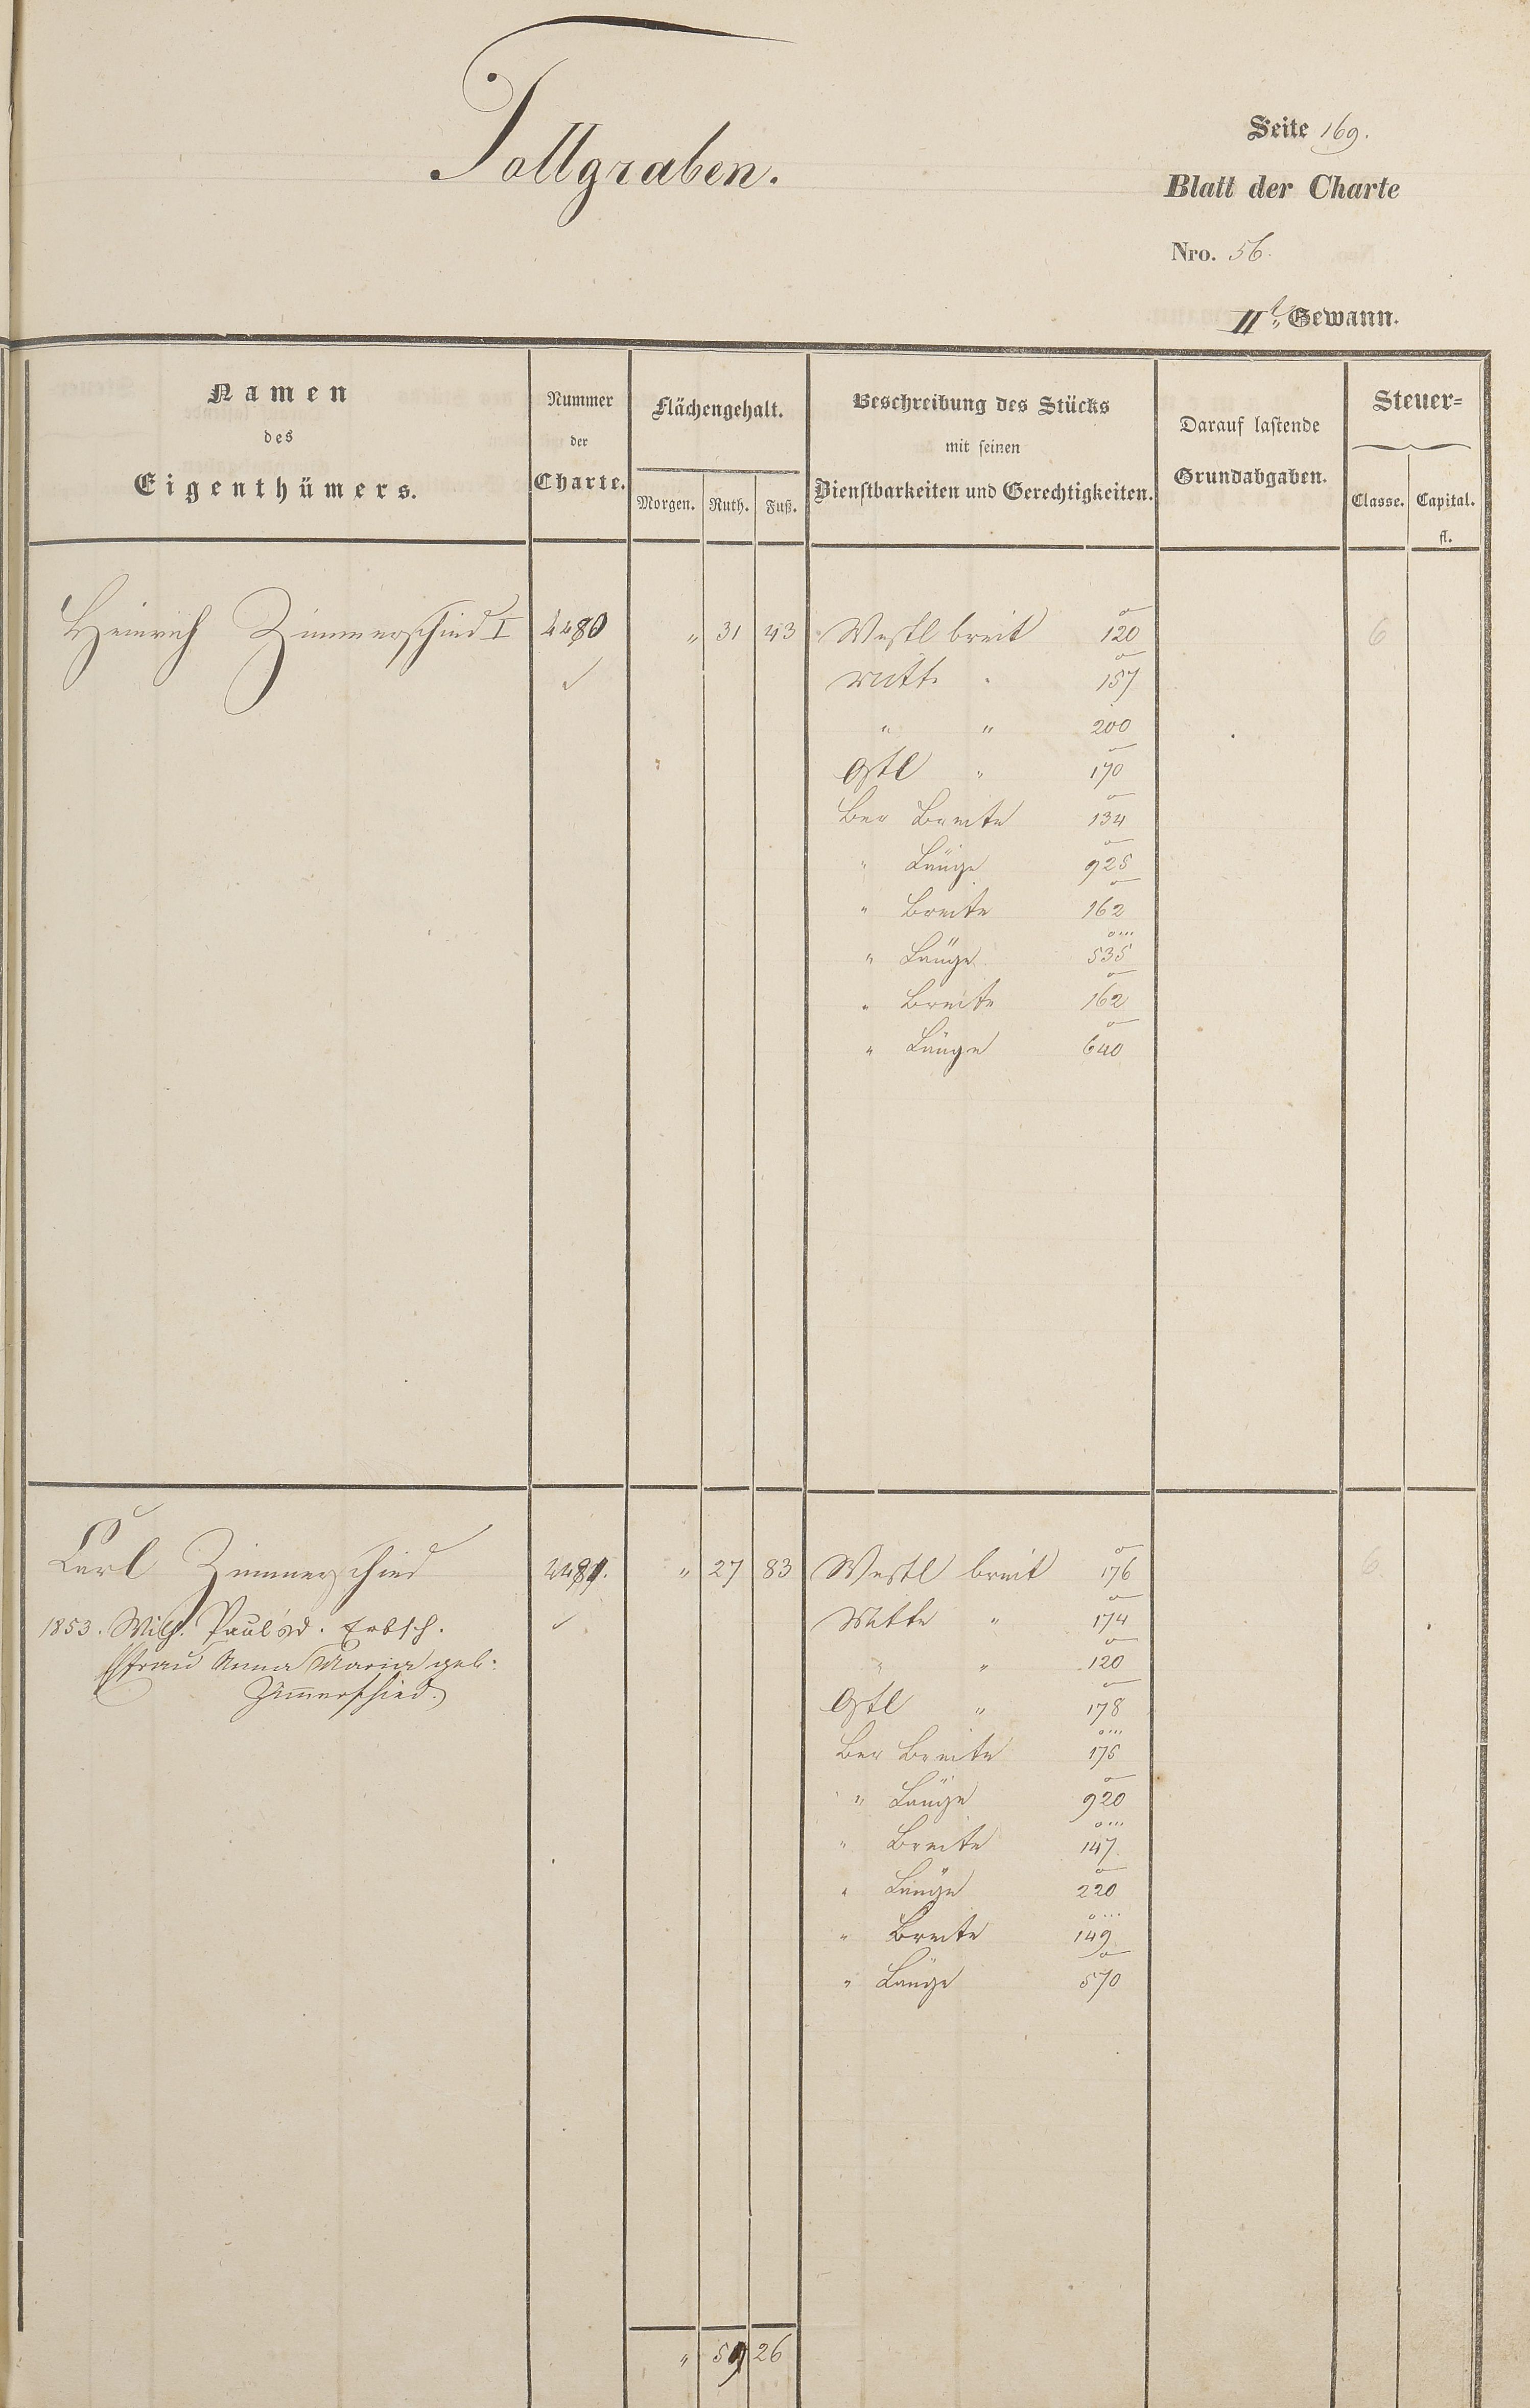 Tollgraben.
Seite 169.
Blatt der Charte
Nro. 56.
IIt. Gewann.
Namen
des
Eigenthümers.
Nummer
der
Charte.
Flächengehalt.
Morgen. Ruth. Fuß.
Beschreibung des Stücks
mit seinen
Dienstbarkeiten und Gerechtigkeiten.
Darauf lastende
Grundabgaben.
Steuer=
Classe. Capital.
fl.
Heinrich Zimmerschied I 4480 „ 31 43 Westl breit 120 6
Mitte „ 157
„ „ 200
Ostl „ 170
Ber Breite 134
„ Länge 925
„ Breite 162
„ Länge 535
„ Breite 162
„ Länge 640
Carl Zimmerschied 4481. „ 27 83 Westl breit 176 6
1853. Wilh. Paul Erbsch. Mitte „ 174
Ehfrau Anna Maria geb. „ „ 120
Zimmerschied. Ostl „ 178
Ber Breite 175
„ Länge 920
„ Breite 147
„ Länge 220
„ Breite 149
„ Länge 570
„ 59 26